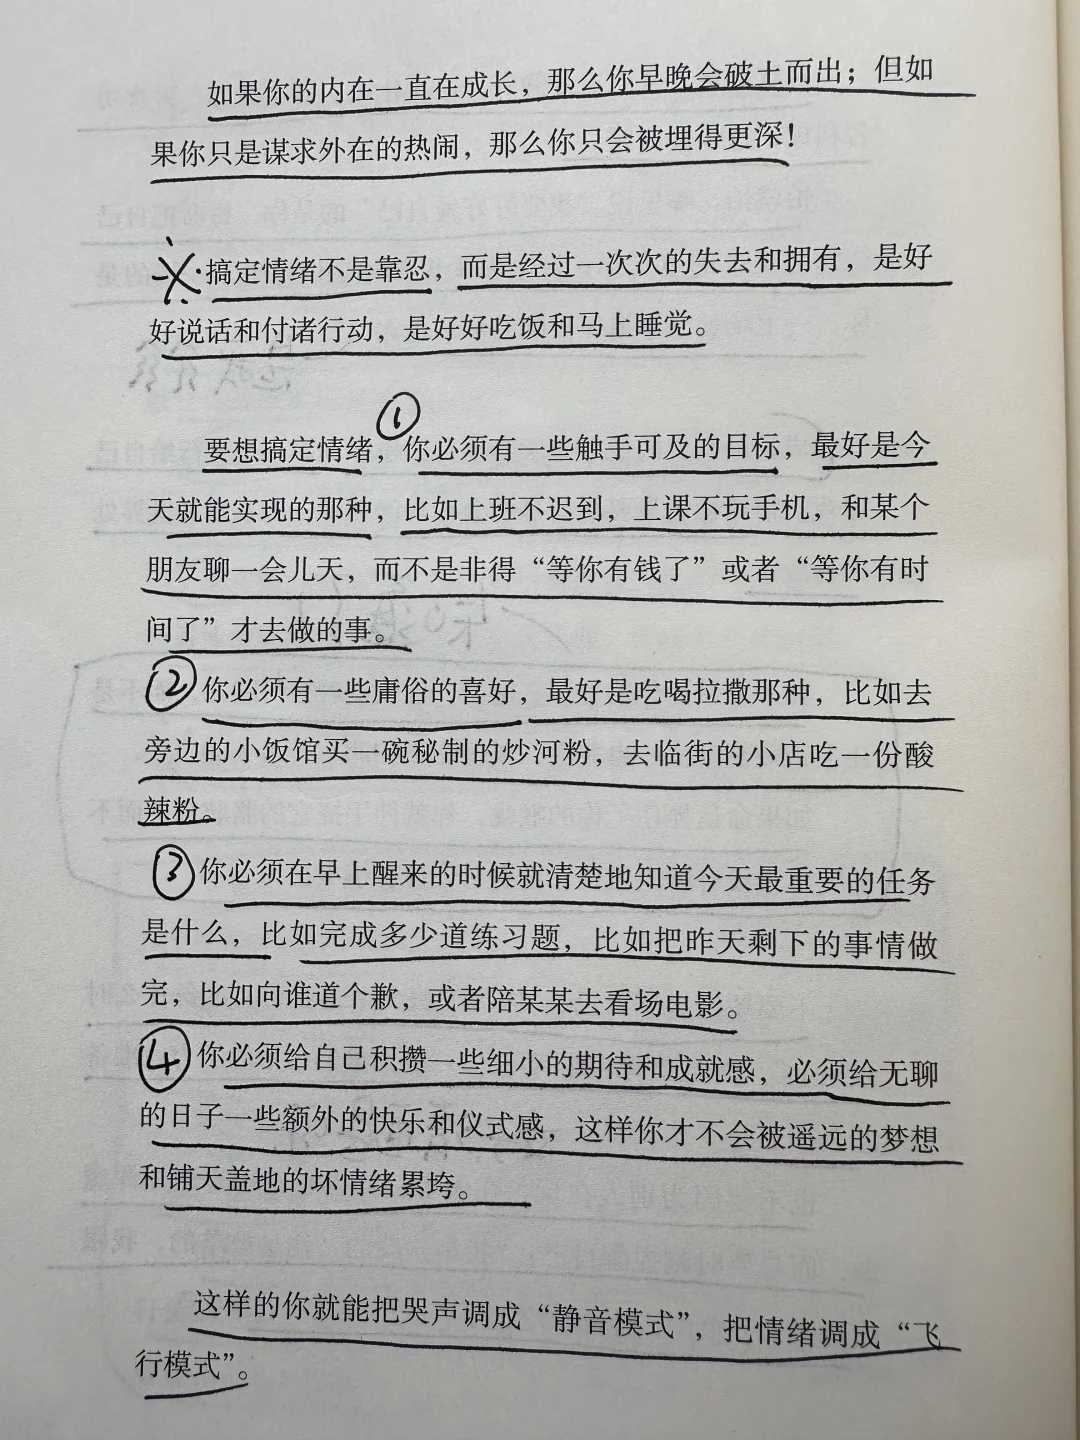 如果你的内在一直在成长，那么你早晚会破土而出；但如
果你只是谋求外在的热闹，那么你只会被埋得更深！
搞定情绪不是靠忍，而是经过一次次的失去和拥有，是好
好说话和付诸行动，是好好吃饭和马上睡觉。
①
要想搞定情绪，你必须有一些触手可及的目标，最好是今
天就能实现的那种，比如上班不迟到，上课不玩手机，和某个
朋友聊一会儿天，而不是非得“等你有钱了”或者“等你有时
间了”才去做的事。
②你必须有一些庸俗的喜好，最好是吃喝拉撒那种，比如去
旁边的小饭馆买一碗秘制的炒河粉，去临街的小店吃一份酸
辣粉。
③你必须在早上醒来的时候就清楚地知道今天最重要的任务
是什么，比如完成多少道练习题，比如把昨天剩下的事情做
完，比如向谁道个歉，或者陪某某去看场电影。
④你必须给自己积攒一些细小的期待和成就感，必须给无聊
的日子一些额外的快乐和仪式感，这样你才不会被遥远的梦想
和铺天盖地的坏情绪累垮。
这样的你就能把哭声调成“静音模式”，把情绪调成“飞
行模式”。